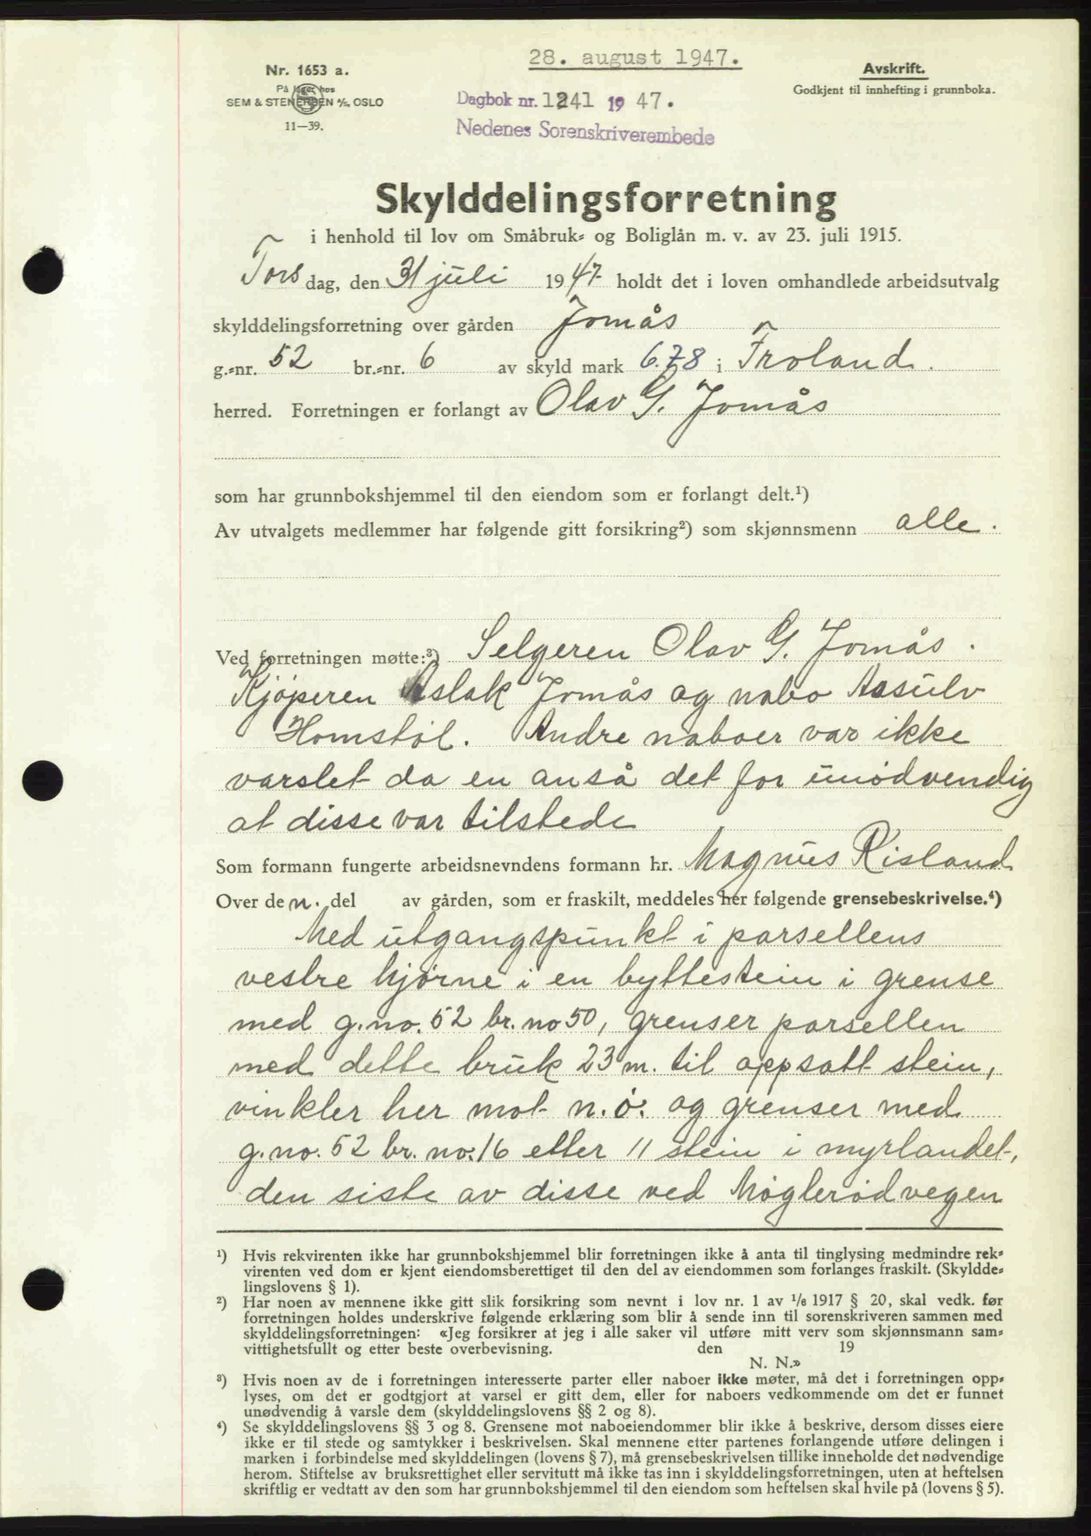 28. august 1947.
Nr. 1653 a.
På lager hos
SEM & STENERSEN A/S, OSLO
11—39.
Dagbok nr. 1241 1947.
Nedenes Sorenskriverembede
Avskrift.
Godkjent til innhefting i grunnboka.
Skylddelingsforretning
i henhold til lov om Småbruk= og Boliglån m. v. av 23. juli 1915.
Torsdag, den 31 juli 1947 holdt det i loven omhandlede arbeidsutvalg
skylddelingsforretning over gården Jomås
g.=nr. 52 br.=nr. 6 av skyld mark 6.78 i Froland.
herred. Forretningen er forlangt av Olav G. Jomås
som har grunnbokshjemmel til den eiendom som er forlangt delt.¹)
Av utvalgets medlemmer har følgende gitt forsikring²) som skjønnsmenn alle.
Ved forretningen møtte:³) Selgeren Olav G. Jomås.
Kjøperen Aslak Jomås og nabo Aasulv
Homstøl. Andre naboer var ikke
varslet da en anså det for unødvendig
at disse var tilstede
Som formann fungerte arbeidsnevndens formann hr. Magnus Risland
Over den. del av gården, som er fraskilt, meddeles her følgende grensebeskrivelse.⁴)
Med utgangspunkt i parsellens
vestre hjørne i en byttestein i grense
med g.no. 52 br. no 50, grenser parsellen
med dette bruk 23 m. til oppsatt stein,
vinkler her mot n.ø. og grenser med
g.no. 52 br. no. 16 etter 11 stein i myrlandet,
den siste av disse ved Møglerødvegen
¹) Hvis rekvirenten ikke har grunnbokshjemmel blir forretningen ikke å anta til tinglysing medmindre rek=
virenten ved dom er kjent eiendomsberettiget til den del av eiendommen som forlanges fraskilt. (Skyldde=
lingslovens § 1).
²) Har noen av mennene ikke gitt slik forsikring som nevnt i lov nr. 1 av 1/6 1917 § 20, skal vedk. før
forretningen holdes underskrive følgende erklæring som blir å sende inn til sorenskriveren sammen med
skylddelingsforretningen: «Jeg forsikrer at jeg i alle saker vil utføre mitt verv som skjønnsmann sam=
vittighetsfullt og etter beste overbevisning. den 19
N. N.»
³) Hvis noen av de i forretningen interesserte parter eller naboer ikke møter, må det i forretningen opp=
lyses, om det er godtgjort at varsel er gitt dem, eller for naboers vedkommende om det er funnet
unødvendig å varsle dem (skylddelingslovens §§ 2 og 8).
⁴) Se skylddelingslovens §§ 3 og 8. Grensene mot naboeiendommer blir ikke å beskrive, dersom disses eiere
ikke er til stede og samtykker i beskrivelsen. Skal mennene etter partenes forlangende utføre delingen i
marken i forbindelse med skylddelingen (lovens § 7), må grensebeskrivelsen tillike inneholde det nødvendige
herom. Stiftelse av bruksrettighet eller servitutt må ikke tas inn i skylddelingsforretningen, uten at heftelsen
skriftlig er vedtatt av den som har grunnbokshjemmel til den eiendom som heftelsen skal hvile på (lovens § 5).